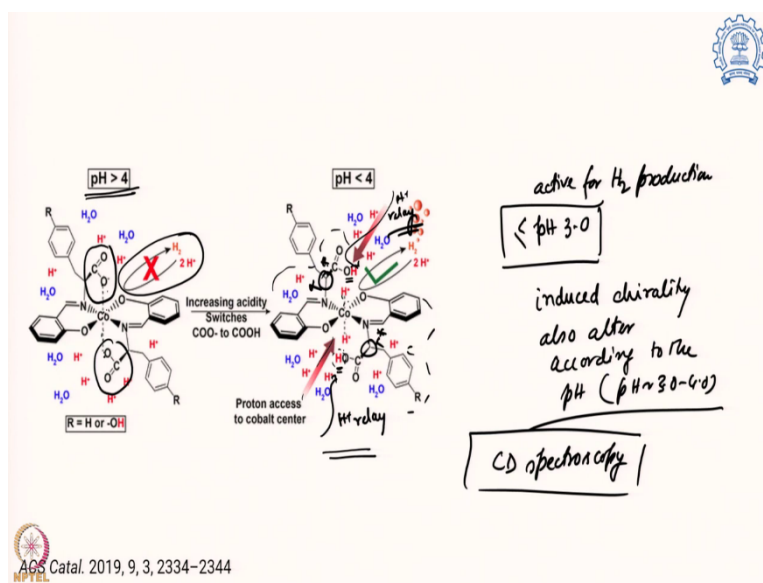 pH > 4
R
H2O
H+
H2O
H+
H+
H2
X
2 H+
H+
H2O
O
O-
N
O
Co
O
N
H2O
H+
H+
H2O
H+
H+
H2O
H+
R
R = H or -OH
Increasing acidity
Switches
COO- to COOH
pH < 4
R
H+
relay
H2O
H+
H+
H2O
H2
2 H+
H+
H2O
O
O
H
N
O
Co
O
N
H+
H+
H2O
H+
H+
H2O
H2O
R
Proton access
to cobalt center
H+ relay
active for H2 production
≤ pH 3.0
induced chirality
also alter
according to the
pH (pH~3.0-4.0)
CD spectroscopy
ACS Catal. 2019, 9, 3, 2334–2344
NPTEL